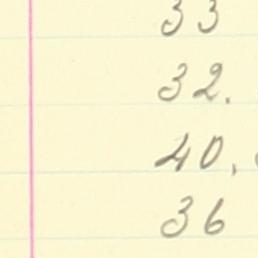 33
32.
40,
36